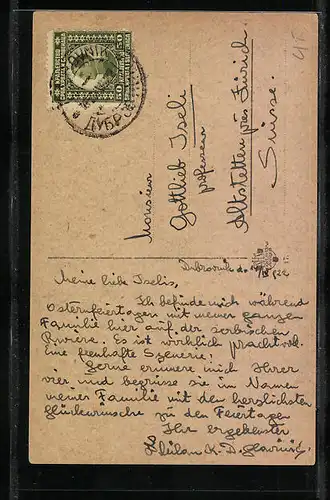 50 50
ДУБРО
Monsieur
Gottlieb Iseli
professeur
Altstetten près Zürich.
Suisse.
Dubrovnik
Meine liebe Iselis,
Ich befinde mich während
Osternfeiertagen mit meiner ganzen
Familie hier auf der serbischen
Riviere. Es ist wirklich prachtvoll.
Eine feenhafte Szenerie!
Gerne erinnere mich Ihrer
vier und begrüsse sie im Namen
meiner Familie mit den herzlichsten
glückwünsche zu den Feiertagen
Ihr ergebenster